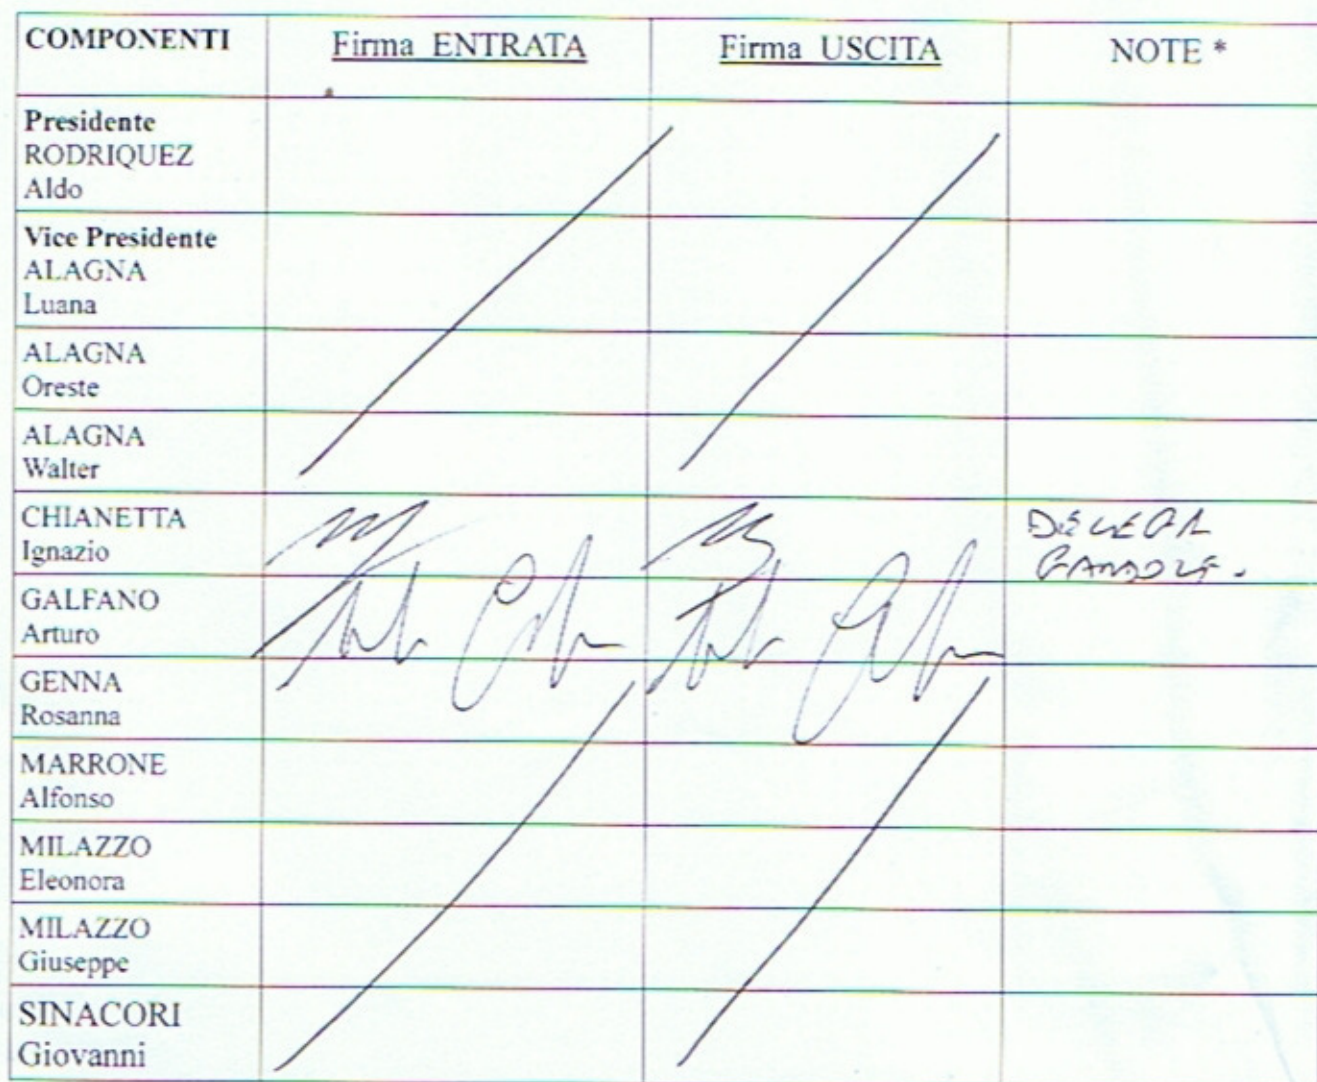 COMPONENTI Firma ENTRATA Firma USCITA NOTE *
Presidente
RODRIQUEZ
Aldo
Vice Presidente
ALAGNA
Luana
ALAGNA
Oreste
ALAGNA
Walter
CHIANETTA
Ignazio
GALFANO
Arturo
GENNA
Rosanna
MARRONE
Alfonso
MILAZZO
Eleonora
MILAZZO
Giuseppe
SINACORI
Giovanni